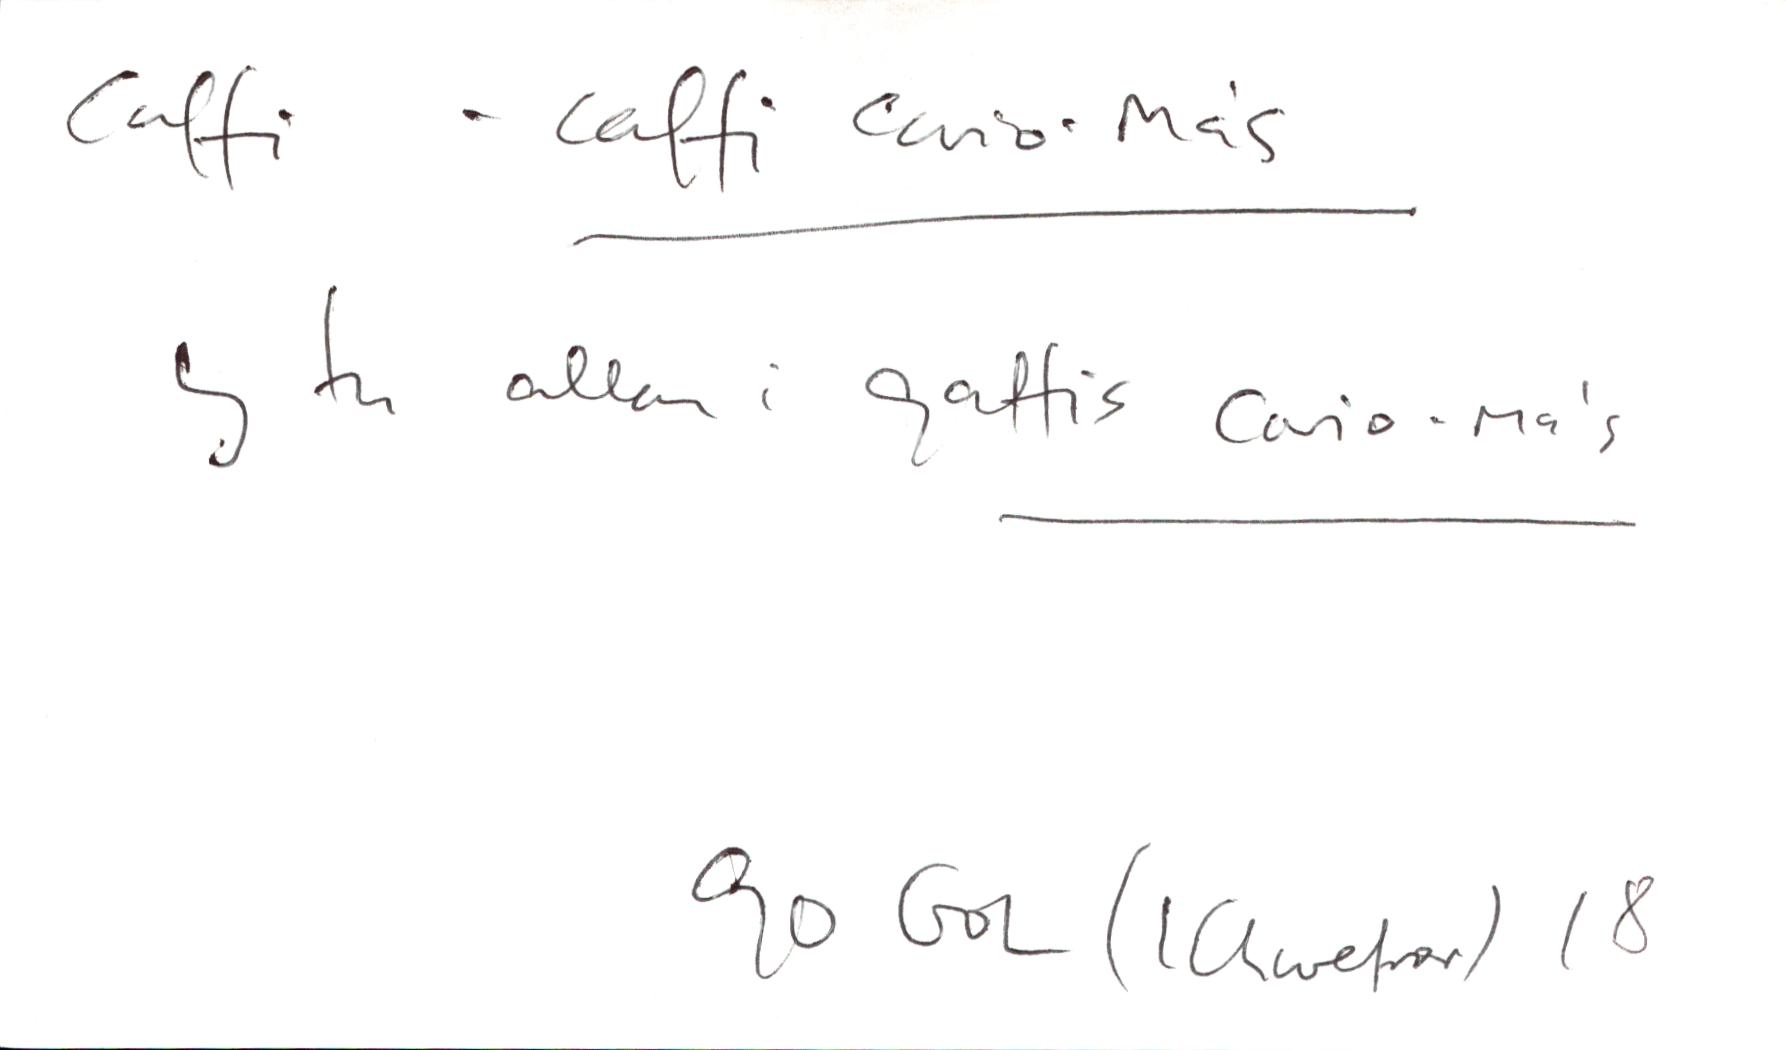 Caffi - caffi cario-más
y tu allan i gaffis cario-ma's
90 GOL (1 Chwefror) 18